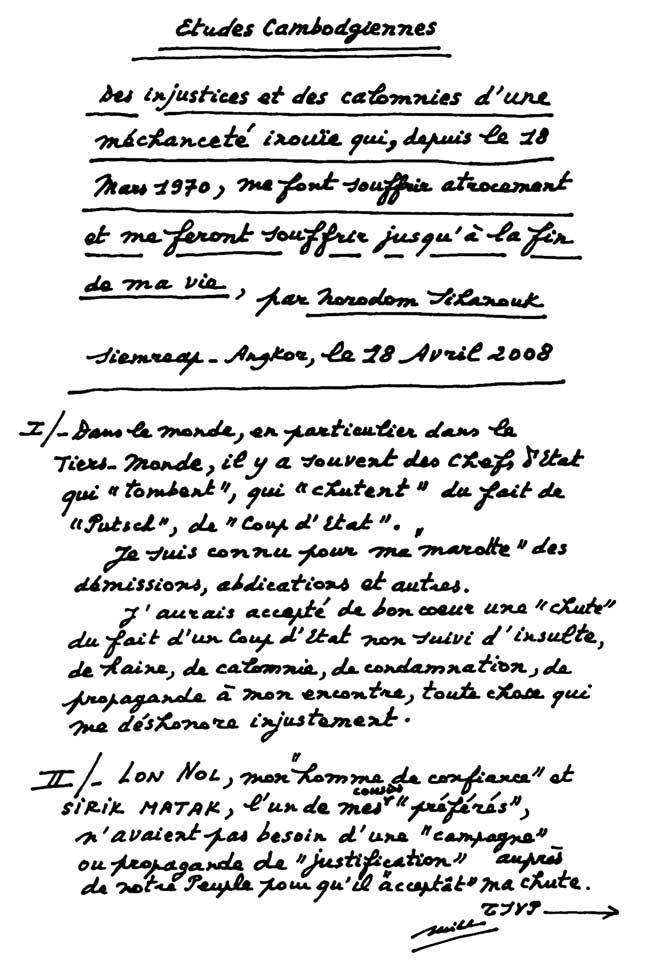 Etudes Cambodgiennes
Des injustices et des calomnies d'une
méchanceté inouïe qui, depuis le 18
Mars 1970, me font souffrir atrocement
et me feront souffrir jusqu'à la fin
de ma vie, par Norodom Sihanouk
Siemreap - Angkor, le 18 Avril 2008
I/- Dans le monde, en particulier dans le
Tiers-Monde, il y a souvent des Chefs d'Etat
qui "tombent", qui "chutent" du fait de
"Putsch", de "Coup d'Etat".
Je suis connu pour ma "marotte" des
démissions, abdications et autres.
J'aurais accepté de bon coeur une "chute"
du fait d'un Coup d'Etat non suivi d'insulte,
de haine, de calomnie, de condamnation, de
propagande à mon encontre, toute chose qui
me déshonore injustement.
II/- LON NOL, mon "homme de confiance" et
SIRIK MATAK, l'un de mes cousins "préférés",
n'avaient pas besoin d'une "campagne"
ou propagande de "justification" auprès
de notre Peuple pour qu'il "acceptât" ma chute.
TSVP →